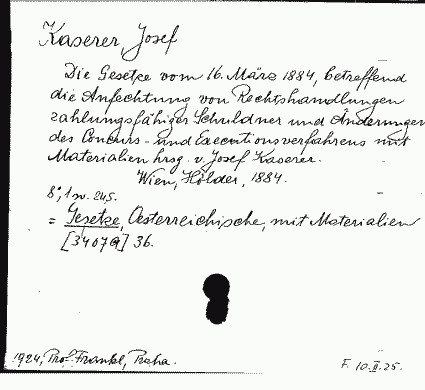 Kaserer, Josef
Die Gesetze vom 16. März 1884, betreffend
die Anfechtung von Rechtshandlungen
zahlungsfähiger Schuldner und Änderungen
des Concurs- und Executionsverfahrens mit
Materialien hrsg. v. Josef Kaserer.
Wien, Hölder, 1884.
8°, 245.
= Gesetze, Oesterreichische, mit Materialien
[34079] 36.
1924, Prof. Frankl, Praha.
F. 10.II.25.